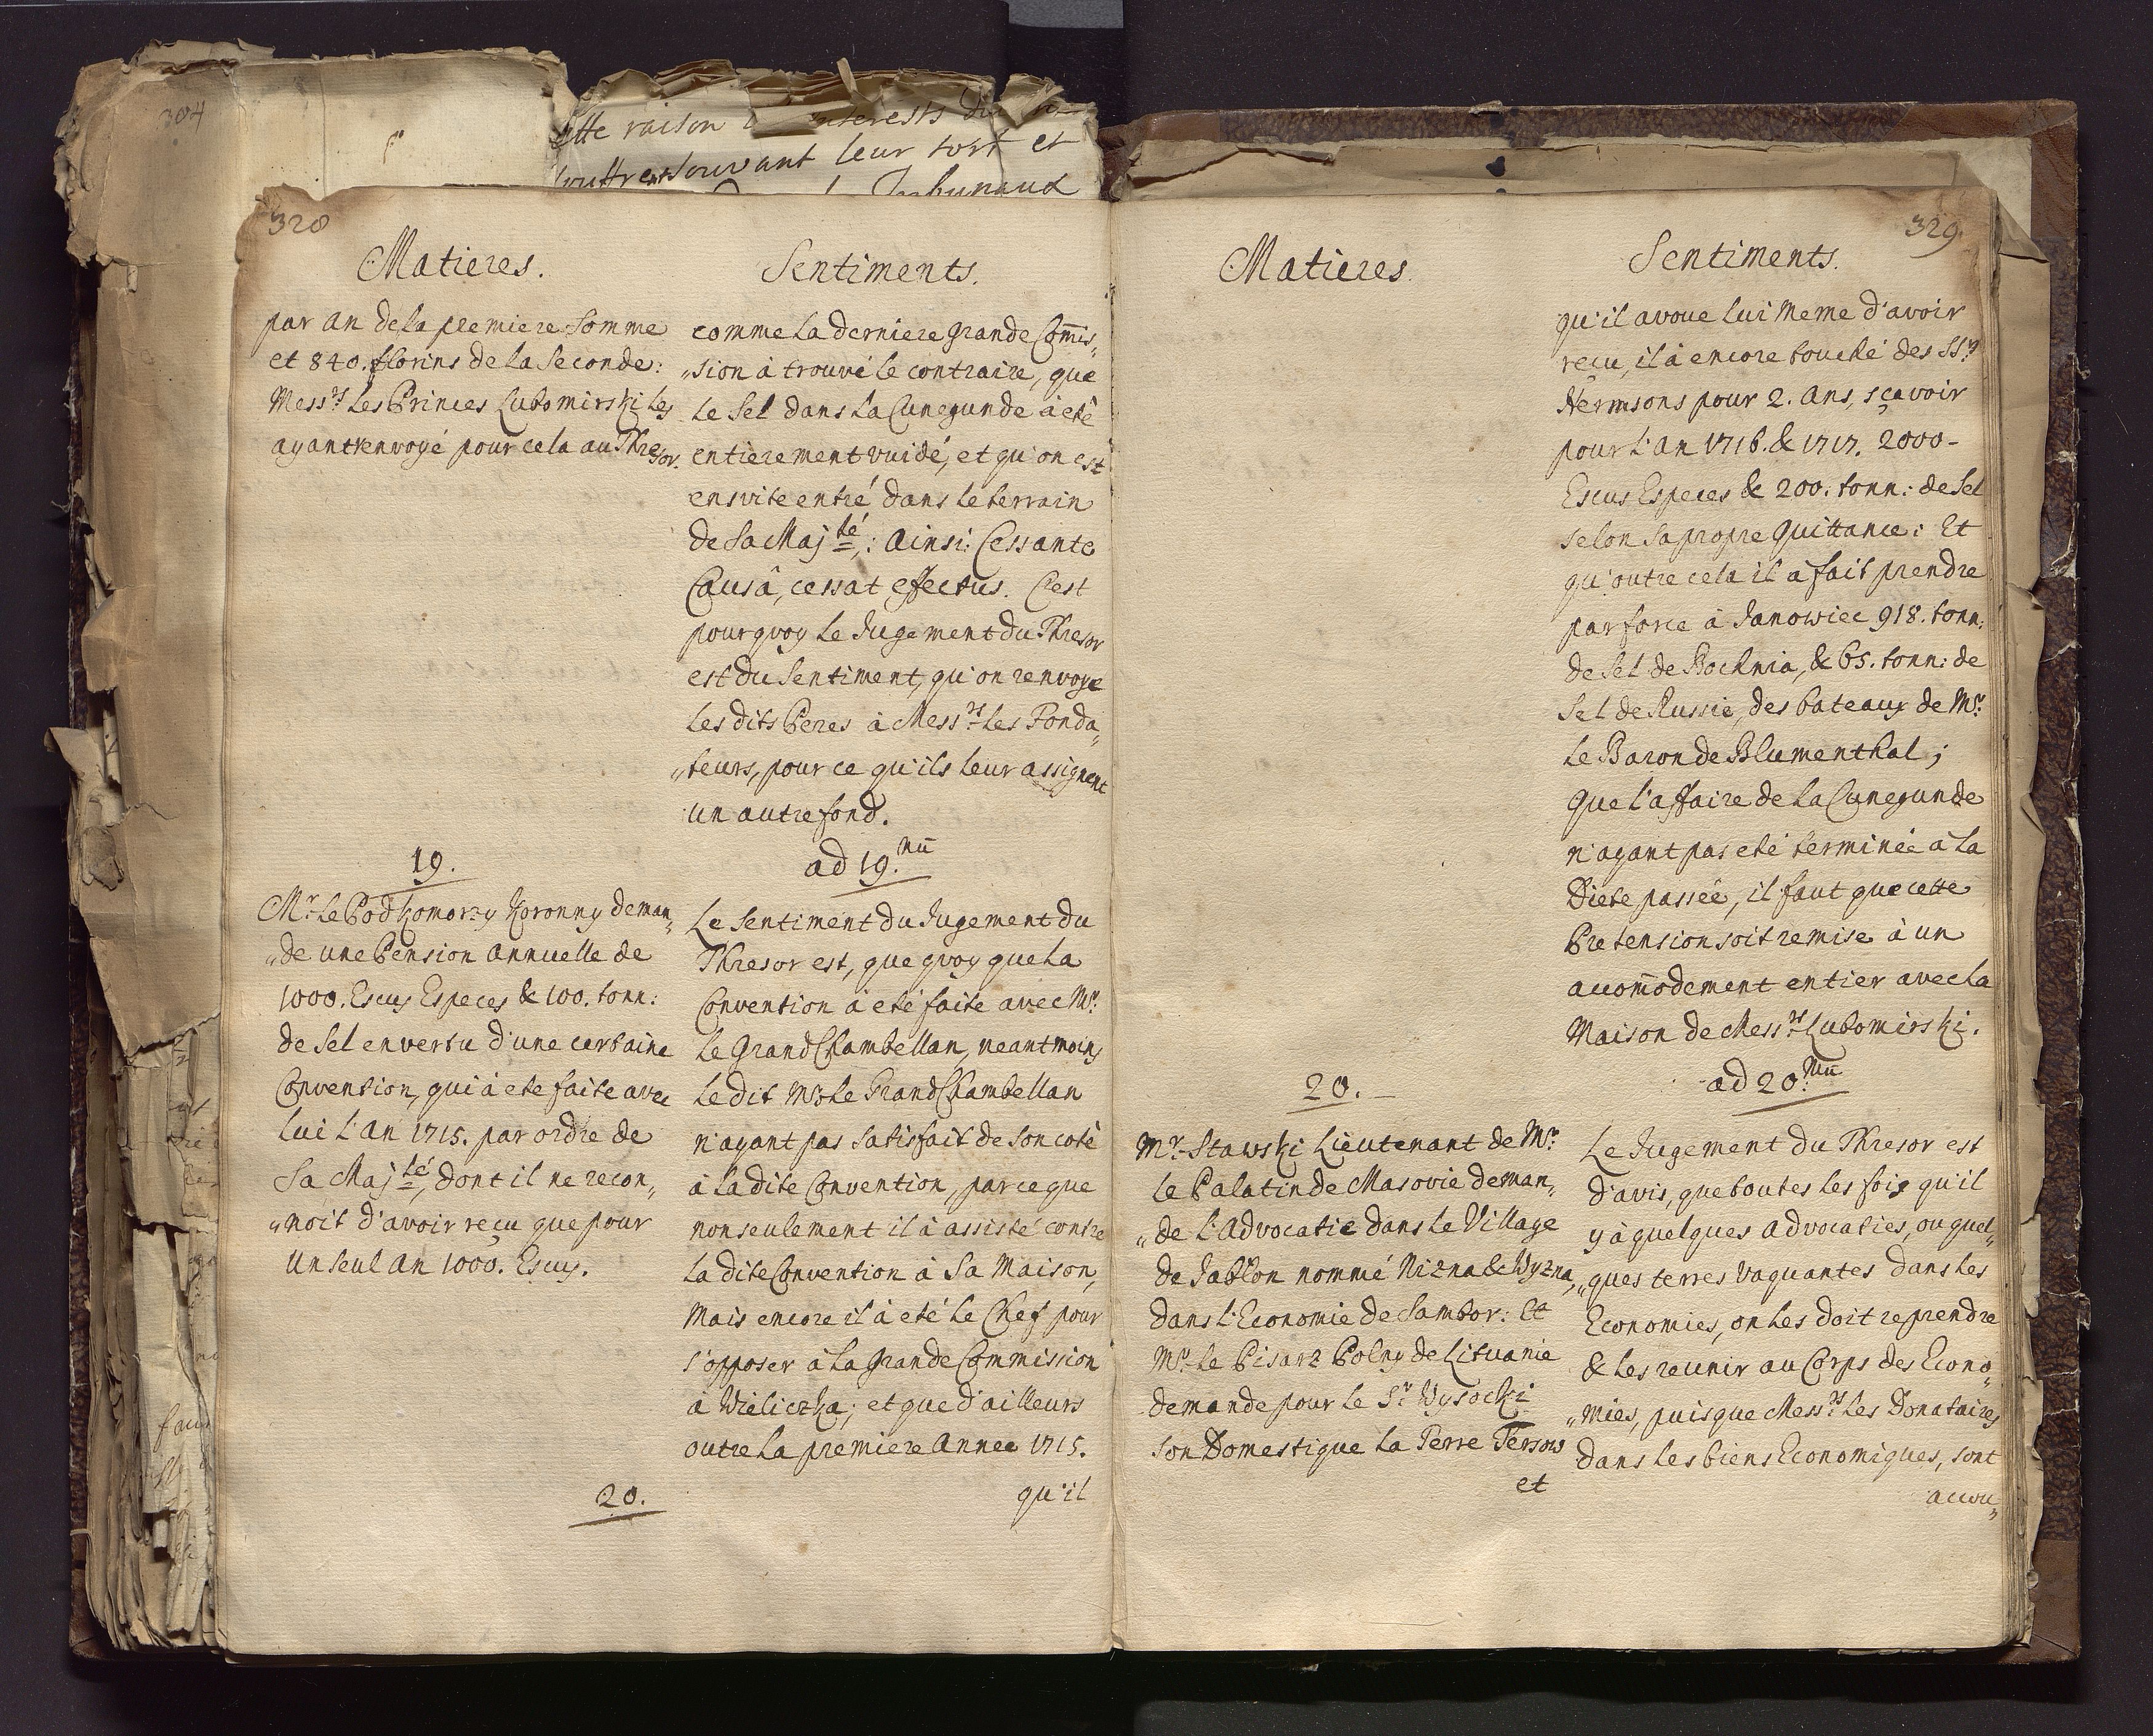 304
ette raison
souffrent souvant leur tort et
328
Matieres.
par an de la premiere Somme
et 840. florins de la Seconde:
Mess.rs Les Princes Lubomirski les
ayant renvoyé pour cela au Thresor.
19.
Mr. Le Podkomorzy Koronny deman„
„de une Pension Annuelle de
1000. Escus Especes & 100. tonn:
de Sel en vertu d'une certaine
Convention, qui à ete faite avec
Lui L'an 1715. par ordre de
Sa Maj.té, dont il ne recon„
„noit d'avoir reçu que pour
un seul an 1000. Escus.
20.
Sentiments.
comme La derniere grande Com̄is„
„sion à trouvé le contraire, que
Le Sel dans La Cunegunde à eté
entierement vuidé, et qu'on est
ensvite entré dans le terrain
de Sa Maj.té: Ainsi: Cessante
Causâ, cessat effectus. C'est
pourqvoy Le Jugement du Thresor
est du Sentiment, qu'on renvoye
Les dits Peres à Mess.rs Les Fonda„
„teurs, pour ce qu'ils leur assignent
un autre fond.
ad 19.mū
Le Sentiment du Jugement du
Thresor est, que qvoy que La
Convention à eté faite avec Mr.
Le Grand Chambellan, neantmoins
Le dit Mr. Le Grand Chambellan
n'ayant pas Satisfait de son coté
à La dite Convention, parceque
non seulement il à assisté contre
La dite Convention à Sa Maison,
Mais encore il à eté Le Chef pour
s'opposer à La Grande Commission
à Wieliczka; et que d'ailleurs
outre La premiere Annee 1715.
qu'il
329
Matieres
20.
Mr. Stawski Lieutenant de Mr.
Le Palatin de Masovie deman„
„de L'Advocatie dans Le Village
de Jablon nommé Nizna & Wyzna,
dans L'Economie de Sambor: Et
Mr. Le Pisarz Polny de Lituanie
demande pour Le Sr. Wysocki
son Domestique La Terre Tersow
et
Sentiments.
qu'il avoue Lui Meme d'avoir
reçu, il à encore touché des SSrs
Hermsons pour 2. Ans, sçavoir
pour L'An 1716. & 1717. 2000-
Escus Especes & 200. tonn: de Sel
selon Sa propre Quittance: Et
qu'outre cela il a fait prendre
par force à Janowiec 918. tonn.
de Sel de Bochnia, & 65. tonn: de
Sel de Russie, des bateaux de Mr.
Le Baron de Blumenthal;
Que L'affaire de La Cunegunde
n'ayant pas eté terminée à La
Diete passée, il faut que cette
Pretension soit remise à un
accom̄odement entier avec La
Maison de Mess.rs Lubomirski.
ad 20.mū
Le Jugement du Thresor est
d'avis, que toutes les fois qu'il
y à quelques Advocaties, ou quel„
„ques terres Vaquantes dans Les
Economies, on Les doit reprendre
& Les reunir au Corps des Econo„
„mies, puisque Mess.rs Les Donataires
dans Les biens Economiques, sont
accou„